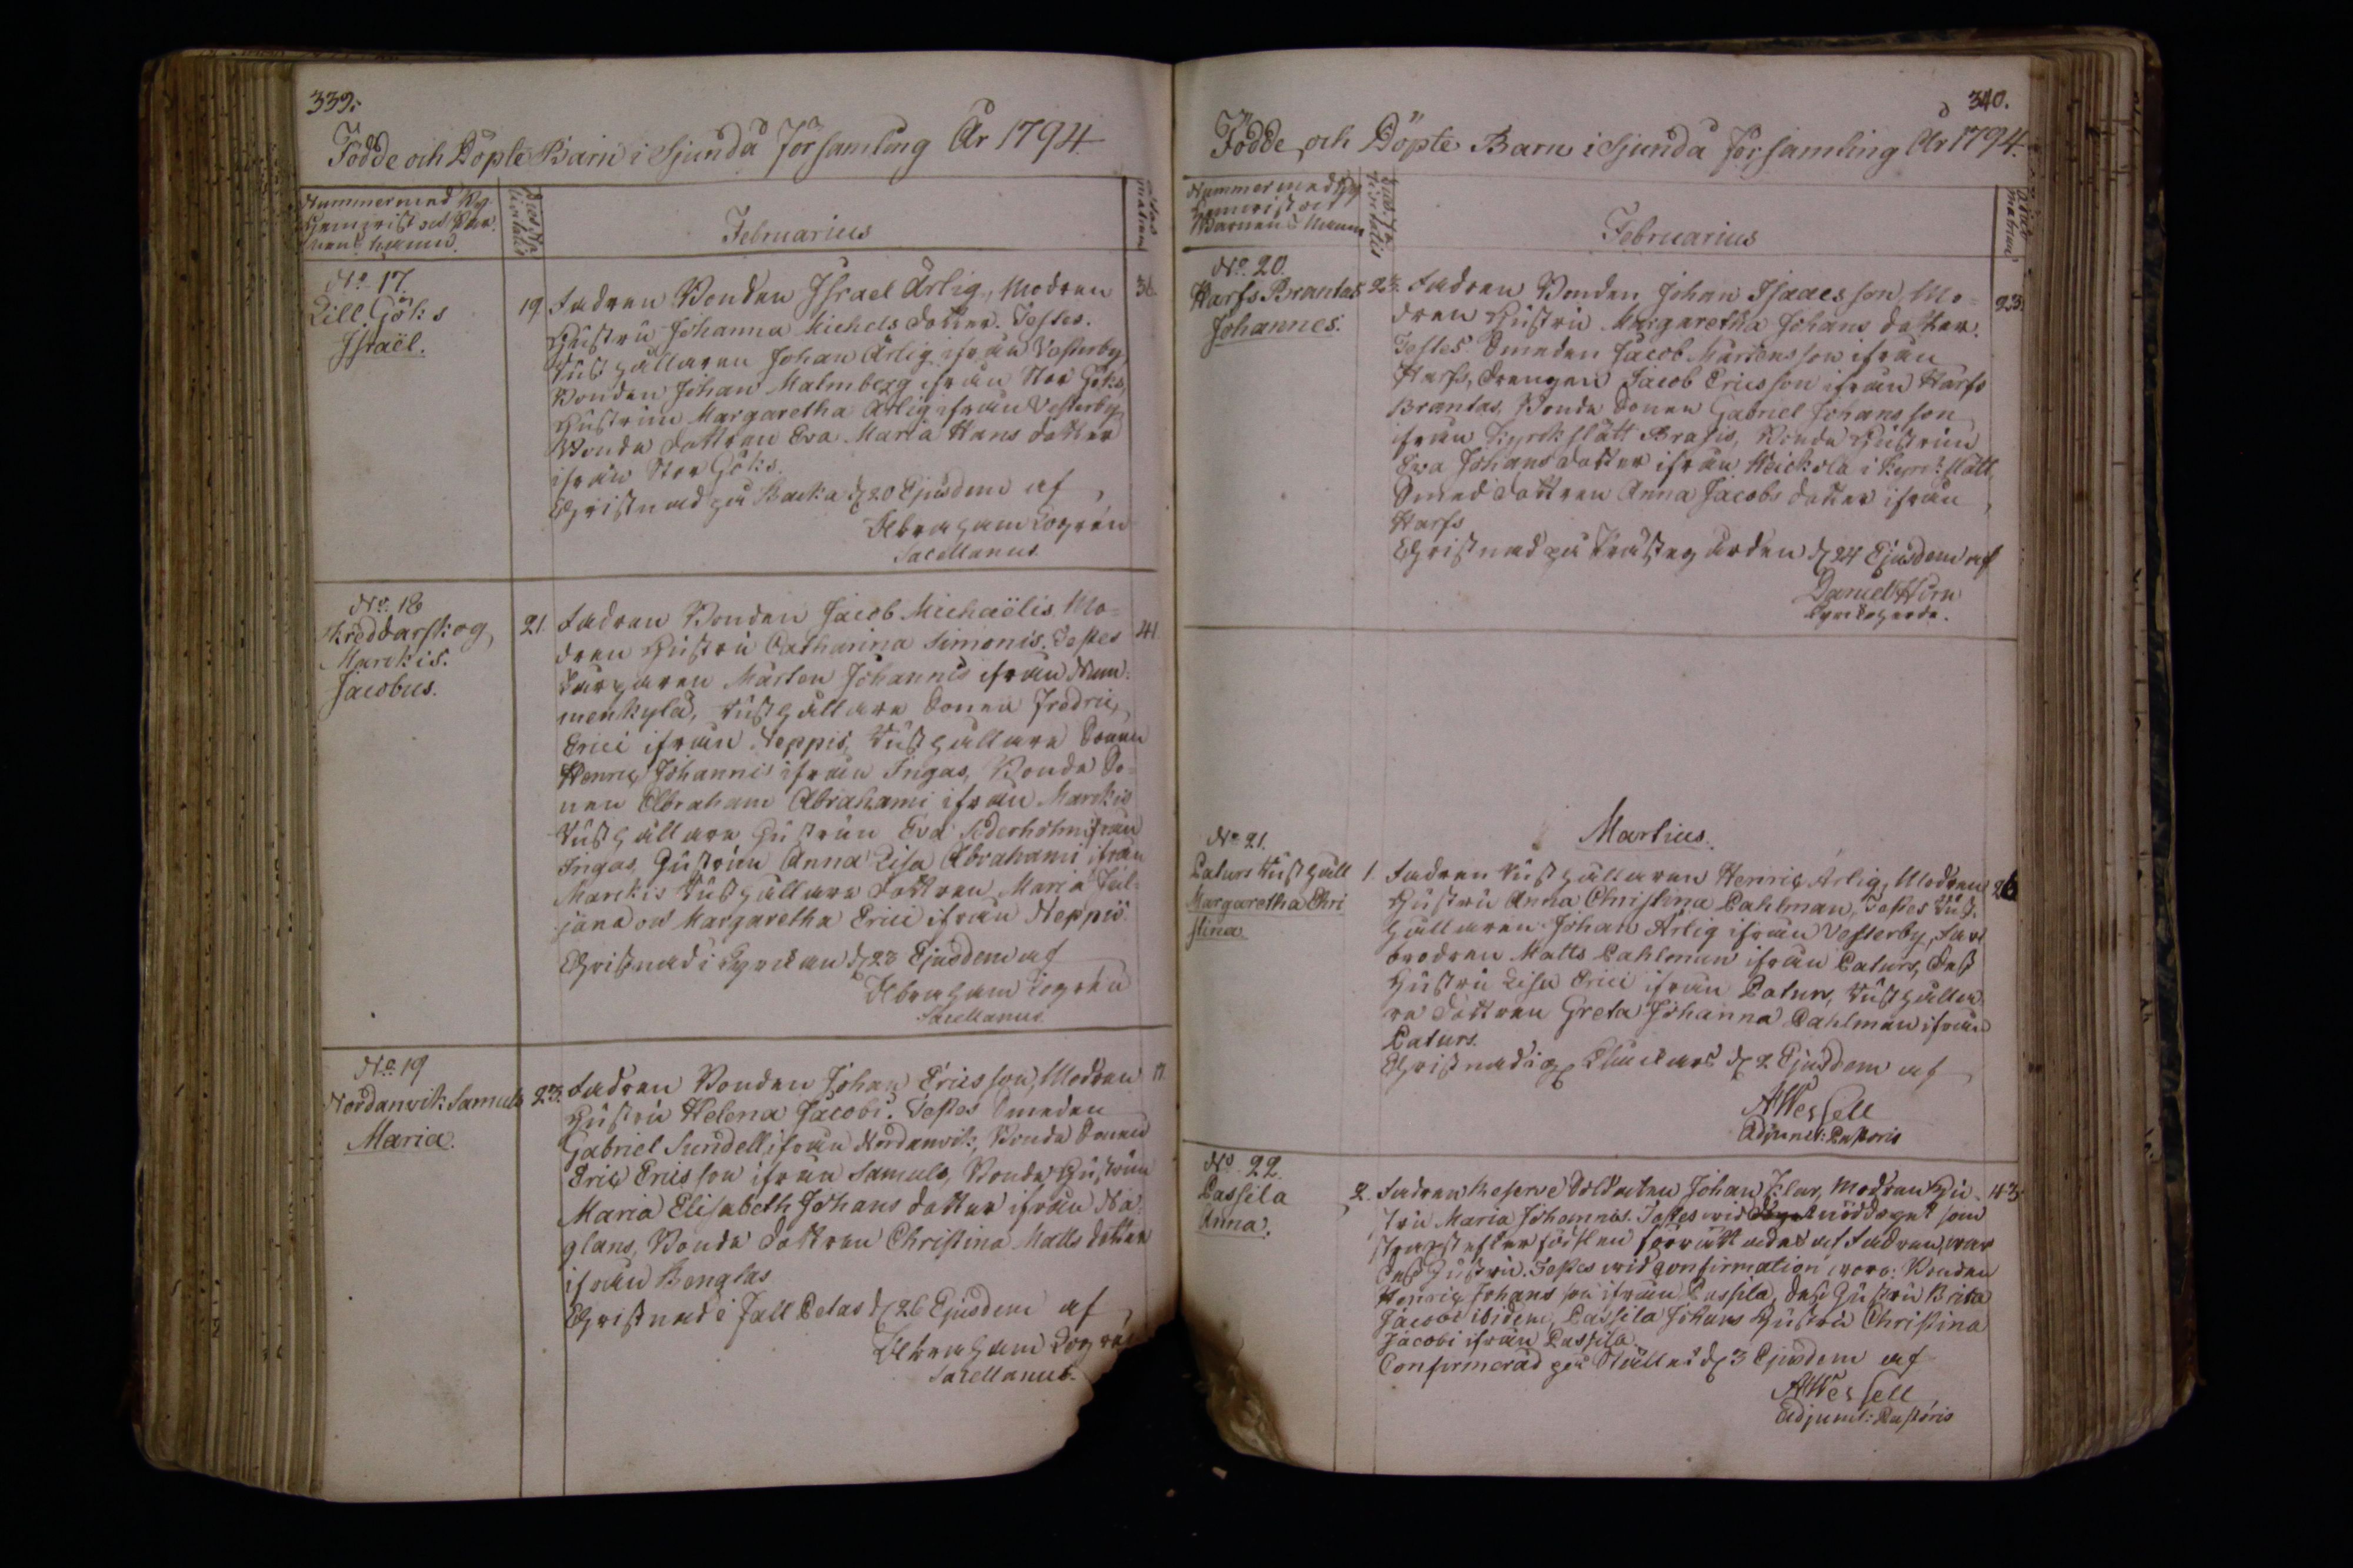 339.
Födde och Döpte Barn i Sjundå Församling År 1794
Nummer med By
Hemvist och Bar-
nens namn.
Dies Na-
tivitatis
Februarius
Ætas
matrum
No. 17.
Lill Göks
Israël.
19
Fadren Bonden Israel Ärlig, Modren
Hustru Johanna Michelsdotter. Testes.
Rusthållaren Johan Ärlig ifrån Vesterby
Bonden Johan Malmberg ifrån Stor Göks,
Hustrun Margaretha Ärlig ifrån Vesterby
Bonda dottren Eva Maria Hans dotter
ifrån Stor Göks.
Christnad på Backa d. 20 Ejusdem af
Abraham Logrén
Sacellanus.
36
No. 18
Skreddarskog
Marckis.
Jacobus.
21.
Fadren Bonden Jacob Michaëlis, Mo-
dren Hustru Catharina Simonis. Testes
Mårten Johannis ifrån Num-
menkylä, Rusthållare Sonen Fredric
Erici ifrån Neppis, Rusthållare Sonen
Henric Johannis ifrån Ingas, Bonda So-
nen Abraham Abrahami ifrån Marckis
Rusthållare Hustrun Eva Söderholm ifrån
Ingas, Hustrun Anna Lisa Abrahami ifrån
Marckis Rusthållare dottren Maria Jul-
jana och Margaretha Erici ifrån Neppis.
Christnad i Kyrckan d. 23 Ejusdem af
Abraham Logrén
Sacellanus
41.
No. 19
Nordanvik Samuels
Maria.
23.
Fadren Bonden Johan Ericsson, Modren
Hustru Helena Jacobi. Testes Smeden
Gabriel Sundell ifrån Nordanvik, Bonda Sonen
Eric Ericsson ifrån Samuels, Bonda Hustrun
Maria Elisabeth Johans dotter ifrån Nä-
glans, Bonda dottren Christina Matts dotter
ifrån Benglas
Christnad i Fall Petas d. 26 Ejusdem af
Abraham Logré
Sacellanus.
340.
Födde och Döpte Barn i Sjundå Församling År 1794.
Nummer med By
Hemvist och
Barnens Namn
Dies Na-
tivitatis
Februarius
Ætas
matrum
No. 20.
Harfs Brantas
Johannes.
23.
Fadren Bonden Johan Isaacsson, Mo-
dren Hustru Margaretha Johans dotter.
Testes Smeden Jacob Mårtensson ifrån
Harfs, Drengen Jacob Ericsson ifrån Harfs
Brantas, Bonda Sonen Gabriel Johansson
ifrån Kyrckslätt Brasis, Bonda Hustrun
Eva Johansdotter ifrån Weickola i Kyrckslätt,
Smed dottren Anna Jacobs dotter ifrån
Harfs
Christnad på Prästegården d. 24 Ejusdem af
Daniel Hirn
Kyrckoherde.
23.
Martius.
No. 21.
Paturs Rusthåll
Margaretha Chri
stina.
1.
Fadren Rusthållaren Henric Ärlig, Modren
Hustru Anna Christina Pahlman, Testes Rust-
hållaren Johan Ärlig ifrån Vesterby, Far
brodren Matts Pahlman ifrån Paturs, dess
Hustru Lisa Erici ifrån Paturs, Rusthålla
re dottren Greta Johanna Pahlman ifrån
Paturs.
Christnad d. 2 Ejusdem af
A Wessell
Adjunct: Pastoris
26
No. 22.
Passila
Anna.
2.
Fadren Reserve Soldaten Johan Klar, Modren Hu-
stru Maria Johannis. Testes wid nöddopet som
strax efter förrättades af Fadren, war
dess Hustru. Testes wid confirmation woro: Bonden
Henric Johansson ifrån Passila, dess Hustru Brita
Jacobi ibidem, Passila Johans Hustru Christina
Jacobi ifrån Passila.
Confirmerad på Stället d. 3 Ejusdem af
A Wessell
Adjunct: Pastoris
43